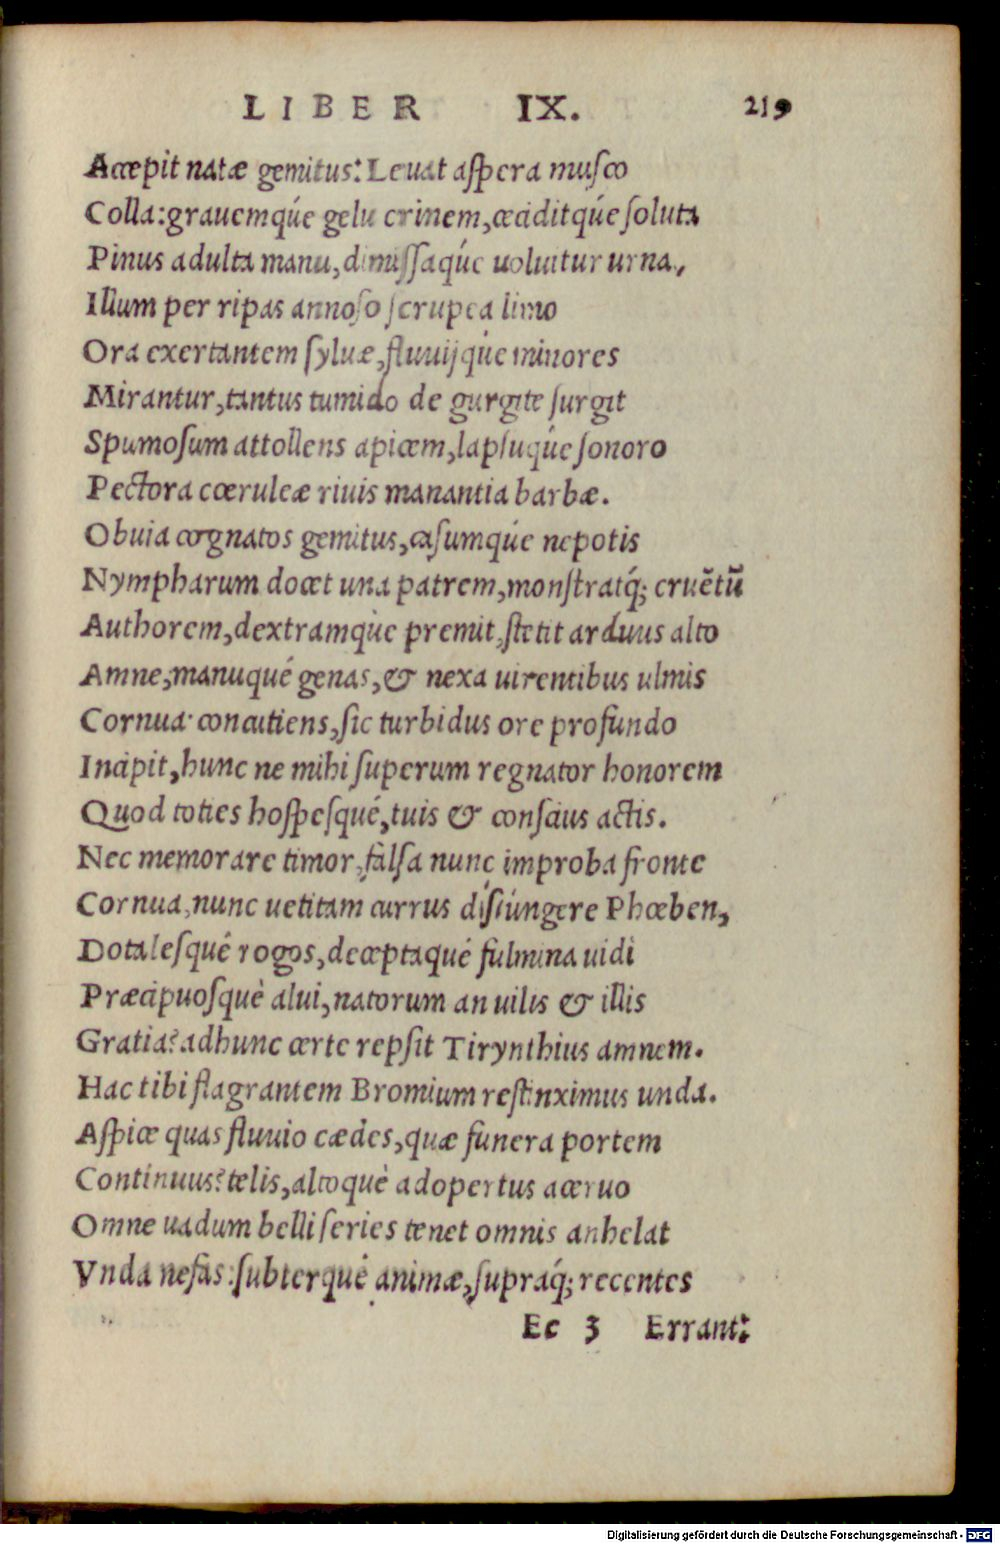 LIBER IX. 219
Accepit natæ gemitus: Leuat aſpera muſco
Colla: grauemqúe gelu crinem, ceciditqúe ſoluta
Pinus adulta manu, dimiſſaqúe uoluitur urna,
Illum per ripas annoſo ſcrupea limo
Ora exertantem ſyluæ, fluuijqùe minores
Mirantur, tantus tumido de gurgite ſurgit
Spumoſum attollens apicem, lapſuqúe ſonoro
Pectora cœruleæ riuis manantia barbæ.
Obuia cognatos gemitus, caſumqúe nepotis
Nympharum docet una patrem, monſtratq́; cruẽtũ
Authorem, dextramqùe premit, ſtetit arduus alto
Amne, manuqué genas, & nexa uirentibus ulmis
Cornua concutiens, ſic turbidus ore profundo
Incipit, hunc ne mihi ſuperum regnator honorem
Quod toties hoſpeſqué, tuis & conſcius actis.
Nec memorare timor, falſa nunc improba fronte
Cornua, nunc uetitam currus diſiúngere Phœben,
Dotaleſqué rogos, deceptaqué fulmina uidi
Præcipuoſquè alui, natorum an uilis & illis
Gratia? adhunc certe repſit Tirynthius amnem.
Hac tibi flagrantem Bromium reſtinximus unda.
Aſpice quas fluuio cædes, quæ funera portem
Continuus? telis, altoquè adopertus aceruo
Omne uadum belli ſeries tenet omnis anhelat
Vnda nefas: ſubterquè animæ, ſupraq́; recentes
Ee 3 Errant:
Digitalisierung gefördert durch die Deutsche Forschungsgemeinschaft - DFG